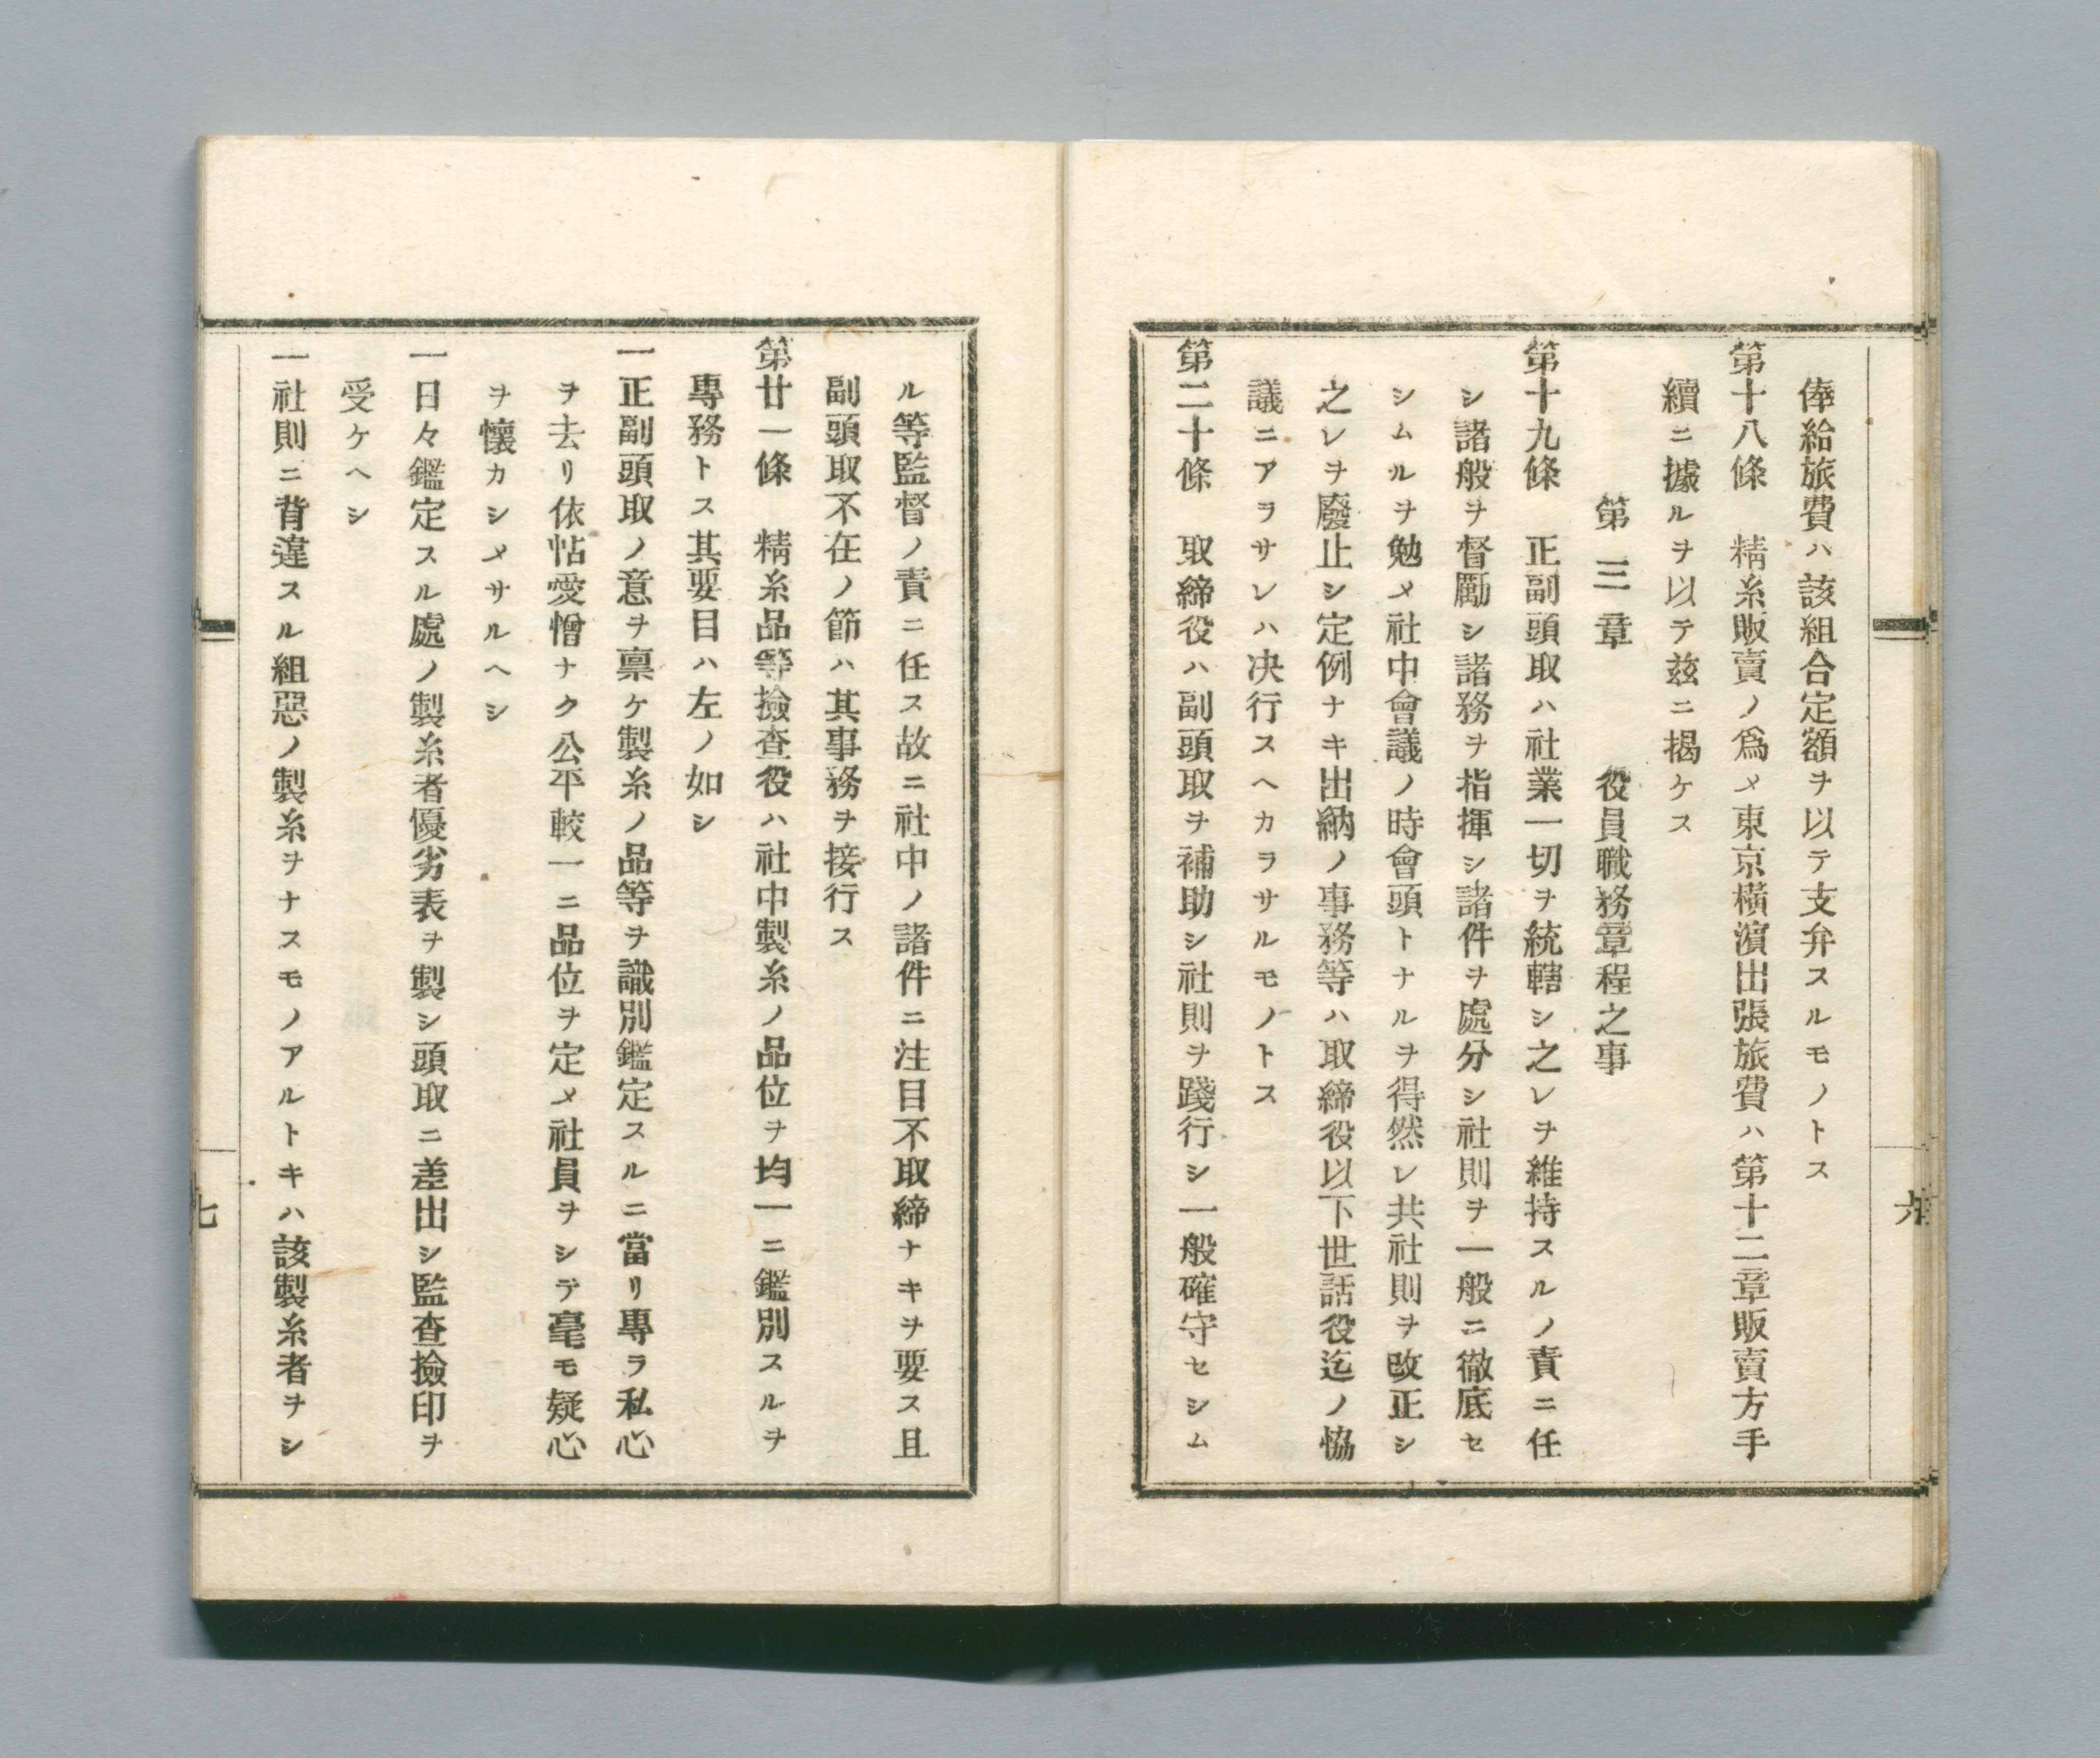 俸給旅費ハ該組合定額ヲ以テ支弁スルモノトス
第十八條　精糸販賣ノ爲メ東京橫濱出張旅費ハ第十二章販賣方手
續ニ據ルヲ以テ玆ニ揭ケス
第三章　役員職務章程之事
第十九條　正副頭取ハ社業一切ヲ統轄シ之レヲ維持スルノ責ニ任
シ諸般ヲ督勵シ諸務ヲ指揮シ諸件ヲ處分シ社則ヲ一般ニ徹底セ
シムルヲ勉メ社中會議ノ時會頭トナルヲ得然レ共社則ヲ改正シ
之レヲ廢止シ定例ナキ出納ノ事務等ハ取締役以下世話役迄ノ恊
議ニアラサレハ决行スヘカラサルモノトス
第二十條　取締役ハ副頭取ヲ補助シ社則ヲ踐行シ一般確守セシム
六
ル等監督ノ責ニ任ス故ニ社中ノ諸件ニ注目不取締ナキヲ要ス且
副頭取不在ノ節ハ其事務ヲ接行ス
第廿一條　精糸品等撿查役ハ社中製糸ノ品位ヲ均一ニ鑑別スルヲ
專務トス其要目ハ左ノ如シ
一正副頭取ノ意ヲ稟ケ製糸ノ品等ヲ識別鑑定スルニ當リ專ラ私心
ヲ去リ依怙愛憎ナク公平較一ニ品位ヲ定メ社員ヲシテ毫モ疑心
ヲ懷カシメサルヘシ
一日々鑑定スル處ノ製糸者優劣表ヲ製シ頭取ニ差出シ監查撿印ヲ
受ケヘシ
一社則ニ背違スル組惡ノ製糸ヲナスモノアルトキハ該製糸者ヲシ
七